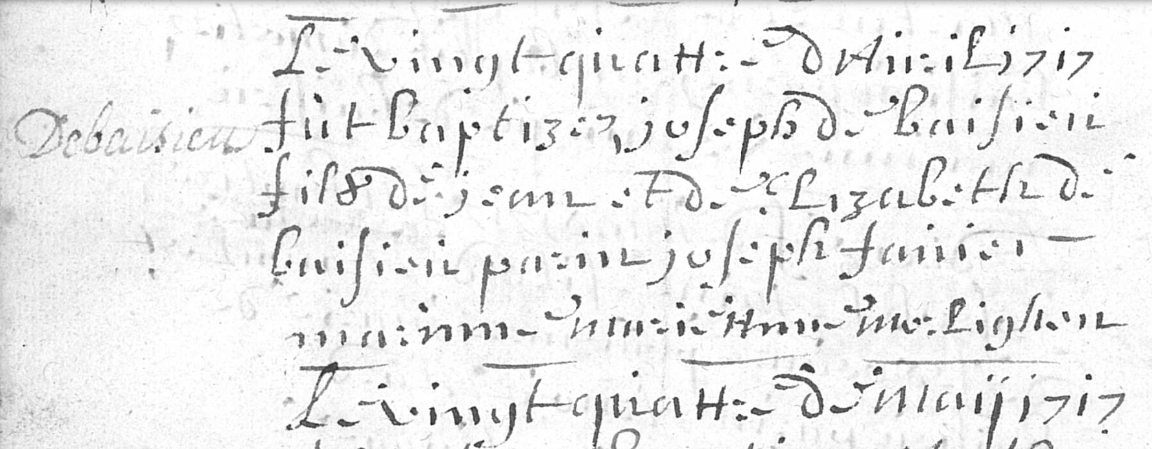 Le vingt quattre d Avril 1717
Debaisieu
fut baptizez joseph de baisieu
fils de jean et de Elizabeth de
baisieu parin joseph favier
marinne marie Anne
Le vingt quattre de Maij 1717